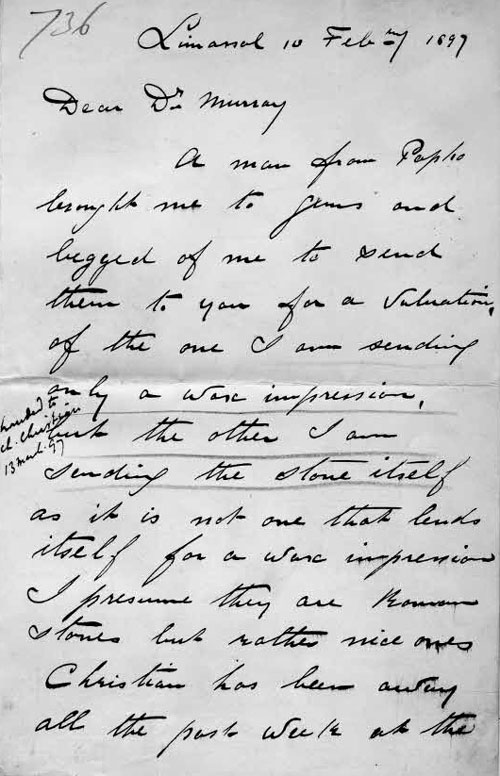 736
Limassol 10 Febry 1897
Dear Dr Murray
A man from Papho
brought me to gems and
begged of me to send
them to you for a valuation,
of the one I am sending
only a wax impression,
but the other I am
sending the stone itself
as it is not one that lends
itself for a wax impression
I presume they are Roman
stones but rather nice ones
Christian has been away
all the past week at the
handed to
ch. Christian
13 March 97